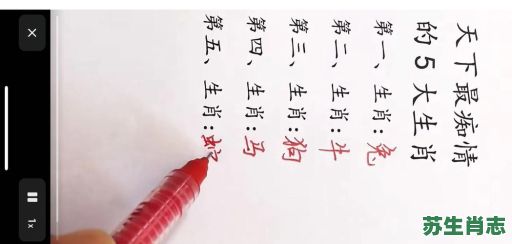 天下最痴情
的5大生肖
第一、生肖:兔
第二、生肖:牛
第三、生肖:狗
第四、生肖:马
第五、生肖:蛇
苏生肖志
1x